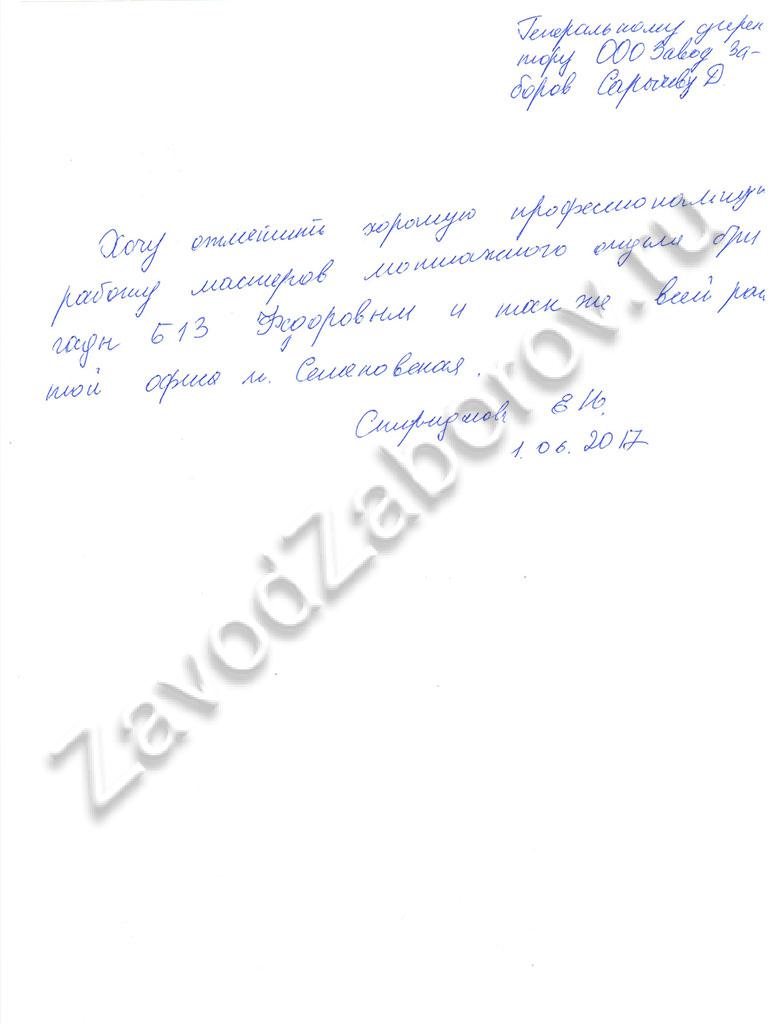 Генеральному дирек
тору ООО Завод За-
боров Сарычеву Д.
Хочу отметить хорошую профессиональную
работу мастеров монтажного отдела бри
гады Б13 и так же всей рабо
той офиса м. Семеновская.
Спиридонов Е Н.
1.06.2017
ZavodZaborov.ru